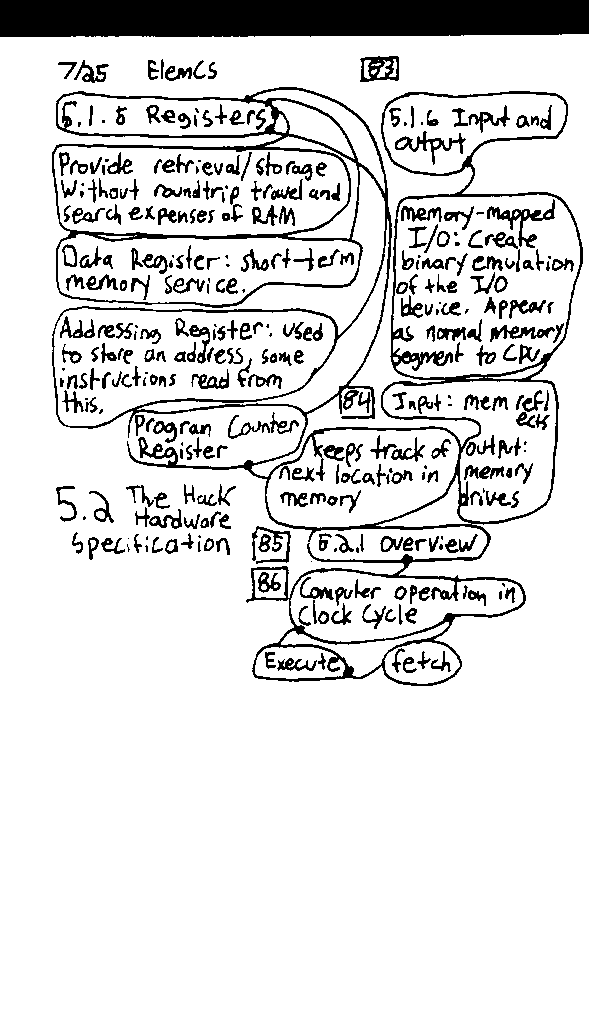 7/25 ElemCS 83
5.1.5 Registers
Provide retrieval/storage
Without roundtrip travel and
search expenses of RAM
Data Register: short-term
memory service.
Addressing Register: used
to store an address, some
instructions read from
this.
Program Counter
Register
keeps track of
next location in
memory
5.1.6 Input and
output
memory-mapped
I/O: Create
binary emulation
of the I/O
device. Appears
as normal memory
segment to CPU
84
Input: mem refl
ects
output:
memory
drives
5.2 The Hack
Hardware
Specification
85 5.2.1 overview
86
Computer operation in
Clock Cycle
Execute fetch